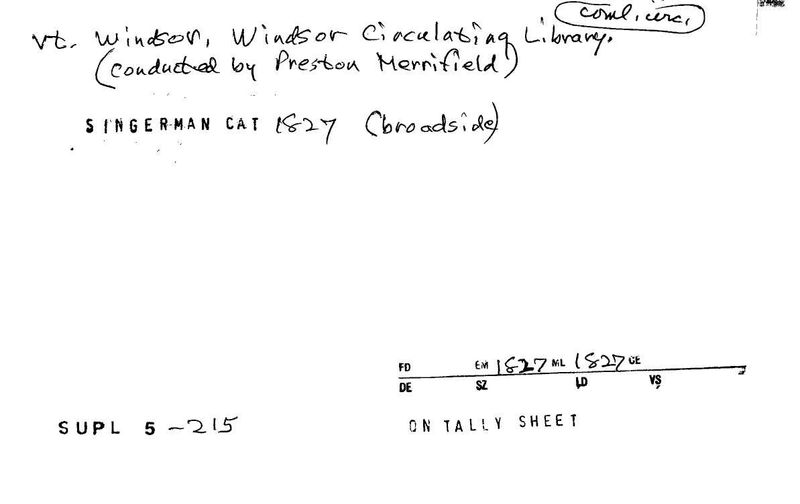 coml. circ.
Vt. Windsor, Windsor Circulating Library.
(conducted by Preston Merrifield)
SINGERMAN CAT 1827 (broadside)
FD EM 1827 ML 1827 CE
DE SZ LD VS
SUPL 5 -215 ON TALLY SHEET